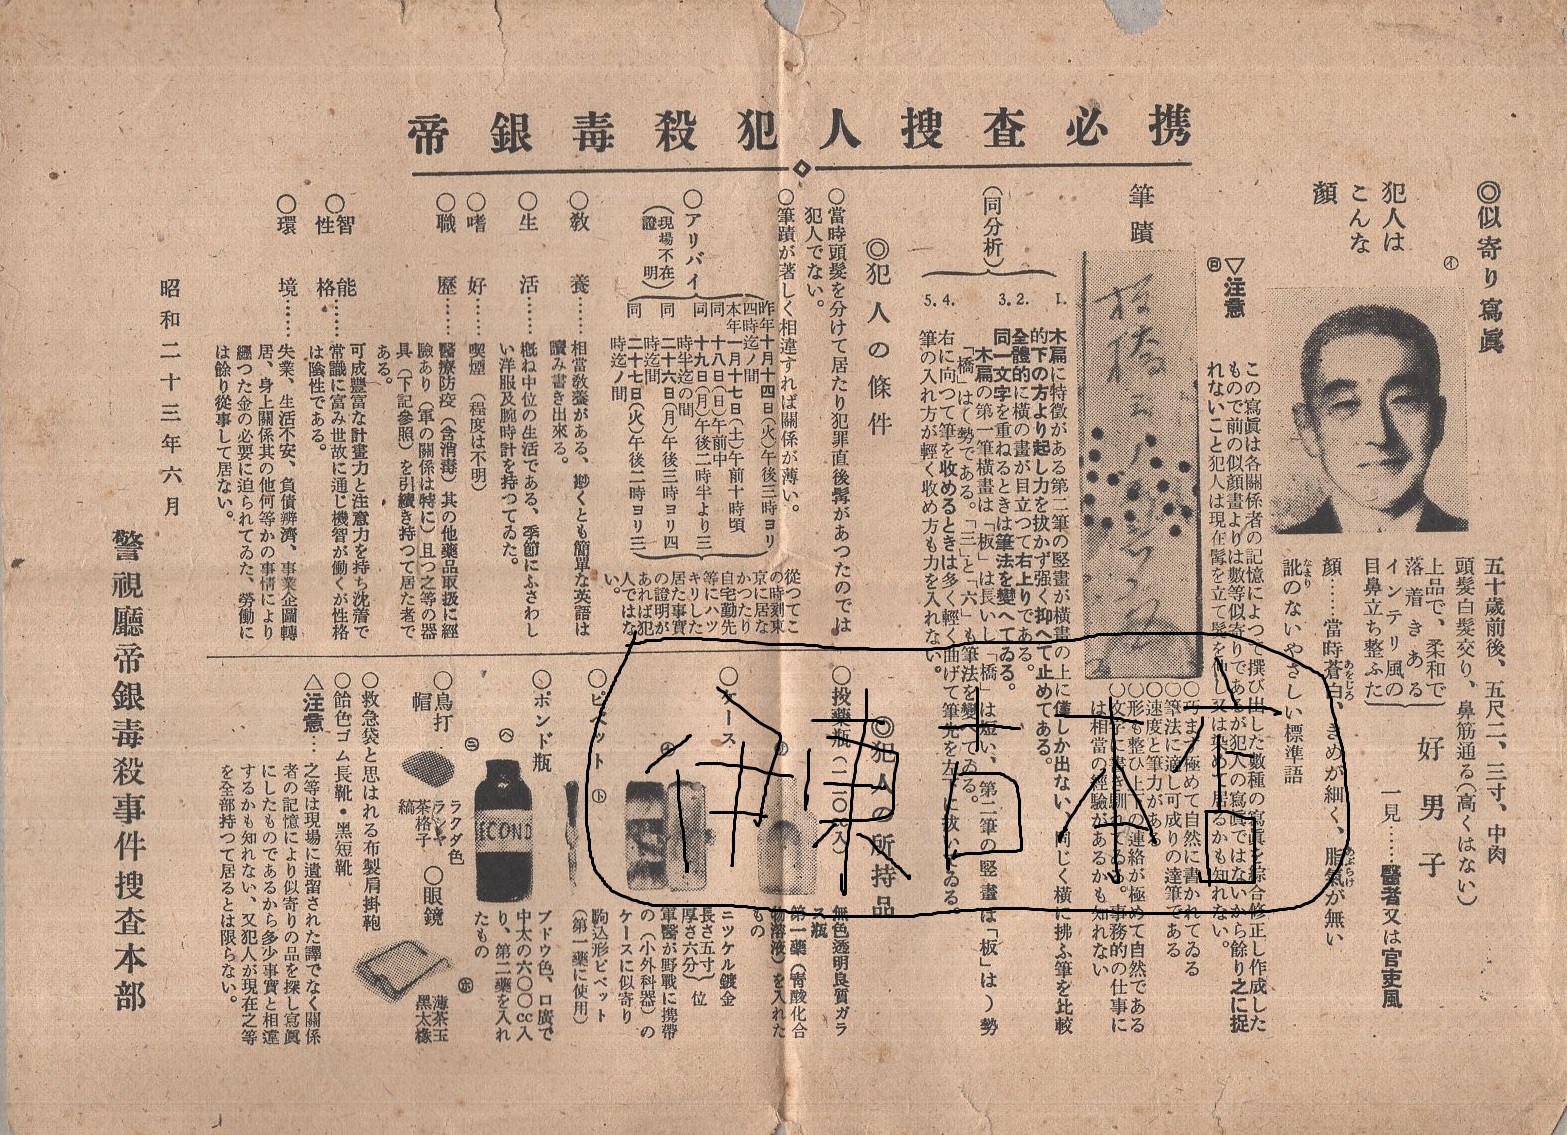 帝銀毒殺犯人捜査必携
◎似寄り寫眞
犯人は
こんな
顏
㋑
五十歳前後、五尺二、三寸、中肉
頭髮白髮交り、鼻筋通る(高くはない)
上品で、柔和で
落着きある
インテリ風の
目鼻立ち整ふた
好男子
一見……醫者又は官吏風
顏……當時蒼白、きめが細く、脂氣が無い
訛のないやさしい標準語
▽注意
この寫眞は各關係者の記憶によつて撰び出した數種の寫眞を綜合修正し作成した
もので前の似顏畫よりは數等似寄りであるが犯人の寫眞ではないから餘り之に捉
れないこと犯人は現在髯を立て髮を伸し又は染めて居るかも知れない。
筆蹟
㋺
○巧まず極めて自然に書かれてゐる
○筆法に適し可成りの達筆である
○速度と筆力があ
○形も整ひ上下の連絡が極めて自然である
○文字に書き馴れてゐる。事務的の仕事に
は相當の經驗があるかも知れない
(同分析)
1. 木扁に特徵がある第二筆の竪畫が横畫の上に僅しか出ない、同じく横に拂ふ筆を比較
的下の方より起し力を拔かず强く抑へて止めてある。
2. 全體的に横の畫が目立つて右上りである。
3. 同一文字を重ねるときは筆法を變へてゐる。
木扁の第一筆横畫は「板」は長いし「橋」は短い、第二筆の竪畫は「板」は)勢
「橋」はく勢である。「三」と「六」も筆法を變へてゐる。
4. 右に向つて筆を收めるときは多く輕く曲げて筆先を左に拔いてゐる。
5. 筆の入れ方が輕く收め方も力を入れない。
◎犯人の條件
○當時頭髮を分けて居たり犯罪直後髯があつたのでは
犯人でない。
○筆蹟が著しく相違すれば關係が薄い。
○アリバイ
(現場不在證明)
昨年十月十四日(火)午後三時ヨリ
四時迄ノ間
本年一月十七日(土)午前十時頃
同 十八日(日)午前中
同 十九日(月)午後二時半より三
時半迄の間
同 二十六日(月)午後三時ヨリ四
時迄間
同 二十七日(火)午後二時ヨリ三
時迄ノ間
從つてこ
の時刻東
京に居な
かつたり
自宅勤先
等にハツ
キリした
居た事實
の證明が
あれば犯
人ではな
い。
○敎養……相當敎養がある、尠くとも簡單な英語は
讀み書き出來る。
○生活……槪ね中位の生活である、季節にふさわし
い洋服及腕時計を持つてゐた。
○嗜好……喫煙(程度は不明)
○職歷……醫療防疫(含消毒)其の他藥品取扱に經
驗あり(軍の關係は特に)且つ之等の器
具(下記參照)を引續き持つて居た者で
ある。
○智能
性格……可成豐富な計畫力と注意力を持ち沈着で
常識に富み世故に通じ機智が働くが性格
は陰性である。
○環境……失業、生活不安、負債辨濟、事業企圖轉
居、身上關係其の他何等かの事情により
纒つた金の必要に迫られてゐた、勞働に
は餘り從事して居ない。
◎犯人の所持品
○投藥瓶(二〇〇cc入)
無色透明良質ガラ
ス瓶
第一藥(靑酸化合
物溶液)を入れた
もの
○ケース
ニツケル鍍金
長さ五寸
厚さ六分
位
軍醫が野戰に携帶
の(小外科器)の
ケースに似寄り
○ピペット
㋣
駒込形ピペット
(第一藥に使用)
○ポンド瓶
㋩
ブドウ色、口廣で
中太の六〇〇cc入
り、第二藥を入れ
たもの
ICOND
㋥
○鳥打
帽
ラクダ色
ラシャ
茶格子
縞
○眼鏡
㋭
薄茶玉
黑太椽
○救急袋と思はれる布製肩掛鞄
○飴色ゴム長靴・黑短靴
△注意…之等は現場に遺留された譯でなく關係
者の記憶により似寄りの品を探し寫眞
にしたものであるから多少事實と相違
するかも知れない、又犯人が現在之等
を全部持つて居るとは限らない。
昭和二十三年六月
警視廳帝銀毒殺事件捜査本部
伊東吉本